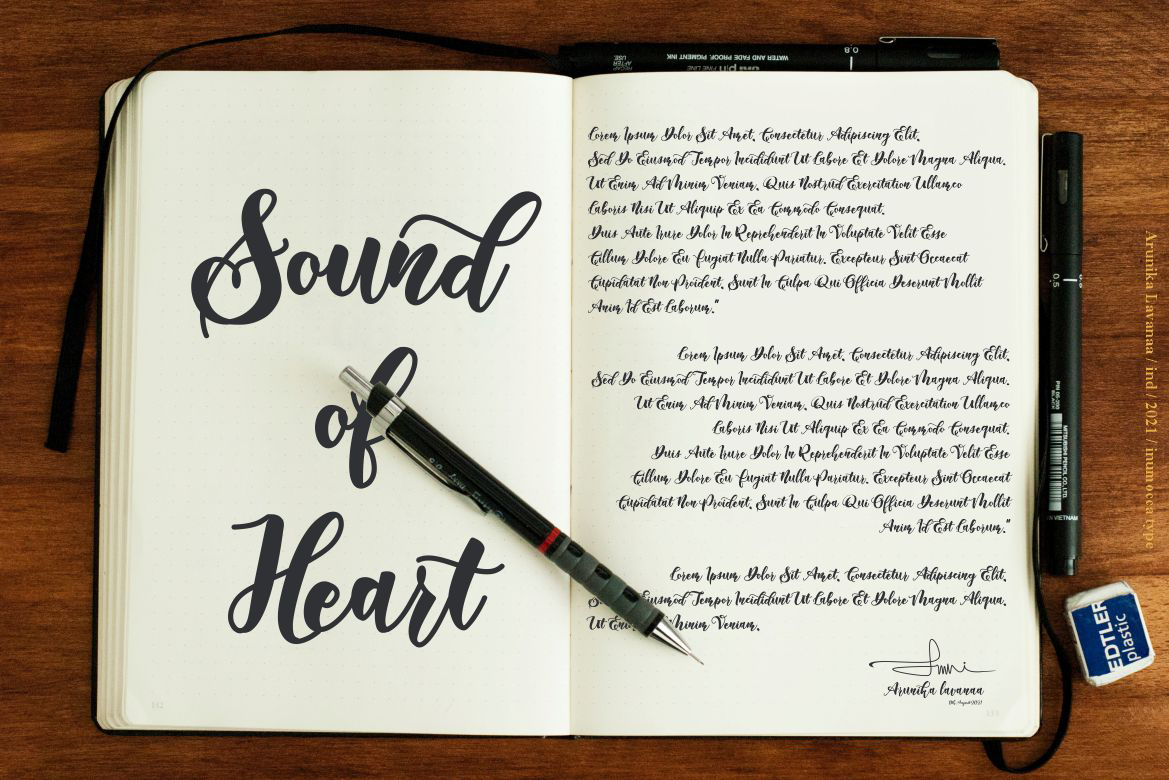 Sound
of
Heart
Lorem Ipsum Dolor Sit Amet, Consectetur Adipiscing Elit,
Sed Do Eiusmod Tempor Incididunt Ut Labore Et Dolore Magna Aliqua.
Ut Enim Ad Minim Veniam, Quis Nostrud Exercitation Ullamco
Laboris Nisi Ut Aliquip Ex Ea Commodo Consequat.
Duis Aute Irure Dolor In Reprehenderit In Voluptate Velit Esse
Cillum Dolore Eu Fugiat Nulla Pariatur. Excepteur Sint Occaecat
Cupidatat Non Proident, Sunt In Culpa Qui Officia Deserunt Mollit
Anim Id Est Laborum."
Lorem Ipsum Dolor Sit Amet, Consectetur Adipiscing Elit,
Sed Do Eiusmod Tempor Incididunt Ut Labore Et Dolore Magna Aliqua.
Ut Enim Ad Minim Veniam, Quis Nostrud Exercitation Ullamco
Laboris Nisi Ut Aliquip Ex Ea Commodo Consequat.
Duis Aute Irure Dolor In Reprehenderit In Voluptate Velit Esse
Cillum Dolore Eu Fugiat Nulla Pariatur. Excepteur Sint Occaecat
Cupidatat Non Proident, Sunt In Culpa Qui Officia Deserunt Mollit
Anim Id Est Laborum."
Lorem Ipsum Dolor Sit Amet, Consectetur Adipiscing Elit,
Eiusmod Tempor Incididunt Ut Labore Et Dolore Magna Aliqua.
Ut Minim Veniam,
Arunika lavanaa
132
133
WATER AND FADE PROOF, PIGMENT INK
pin FINE LINE
RECAP
AFTER
USE.
0.8
0.5
PIN 05-200
BLACK
MITSUBISHI PENCIL CO., LTD.
VIETNAM
EDTLER
plastic
Arunika Lavanaa / ind / 2021 / inumocca type